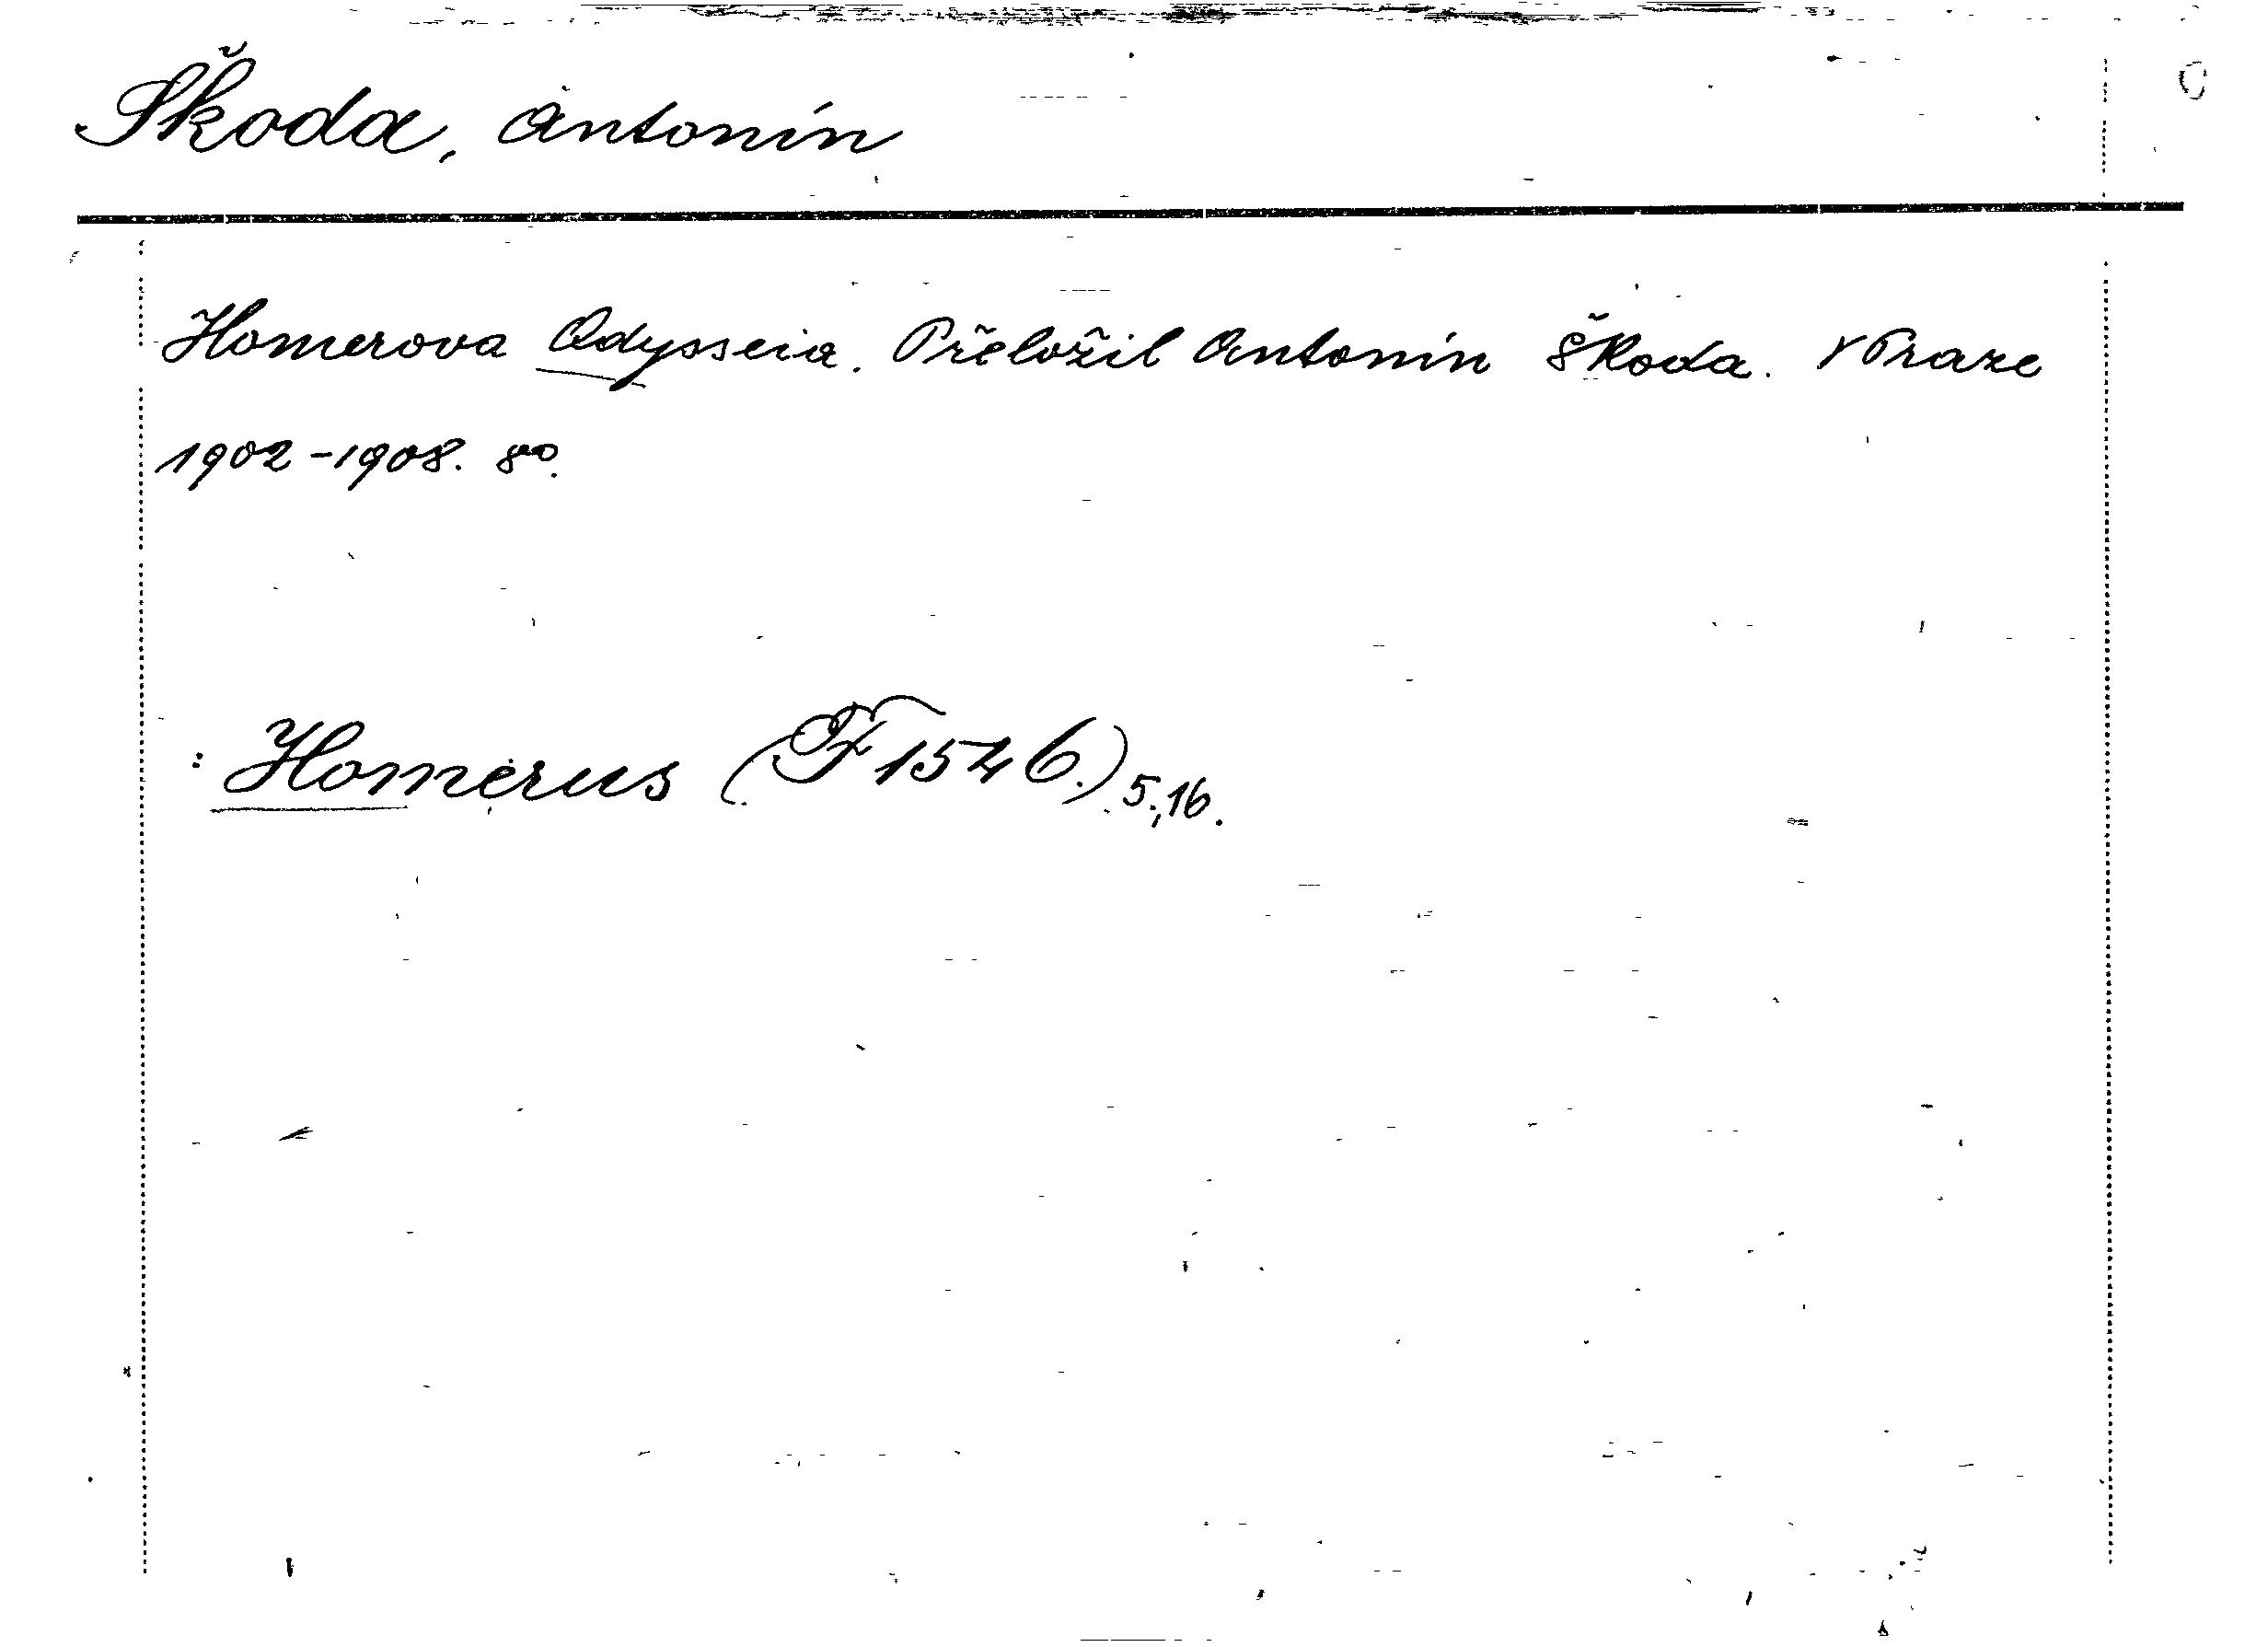 Škoda, Antonín
Homerova Odysseia. Přeložil Antonín Škoda. V Praze
1902-1908. 8º.
: Homerus (F 1546.) 5,16.